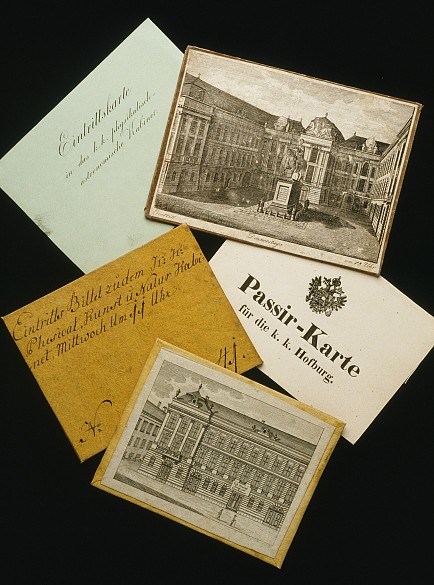 Eintrittskarte
in das k. k. physikalisch-
astronomische Kabinet.
Eintritts Billet zu dem K: K:
Physical. Kunst u Natur Kabi
net. Mittwoch Um Uhr
N:
Passir-Karte
für die k. k. Hofburg.